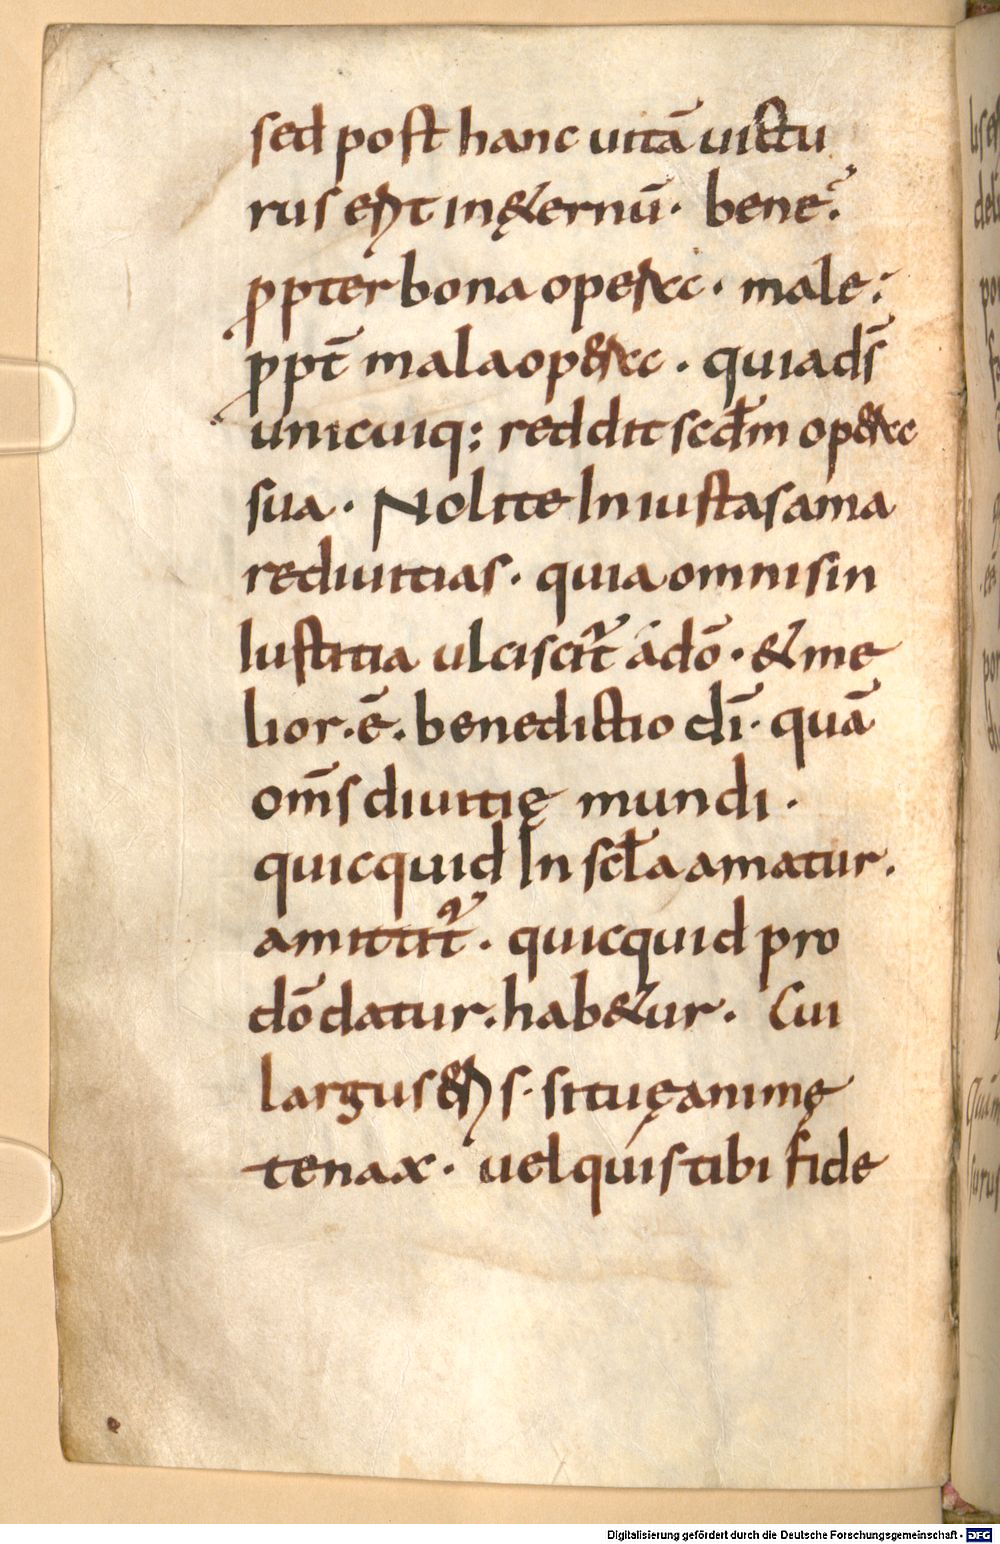 sed post hanc uitā uictu
rus est in&ęrnū · bene ·
ppter bona opera · male ·
ppt̄ mala opera · quia ds̄
unicuiq: reddit scđm opera
sua · Nolite Iniustas ama
re diuitias · quia omnis in
Iustitia ulciscit̄ a dō · & me
lior · ē · benedictio dī · quā
om̄s diuitię mundi ·
quicquid In scł̄a amatur ·
amittit̄ · quicquid pro
dō datur · hab&ur · Cui
largus es · si tuę animę
tenax · uel quis tibi fide
Digitalisierung gefördert durch die Deutsche Forschungsgemeinschaft - DFG